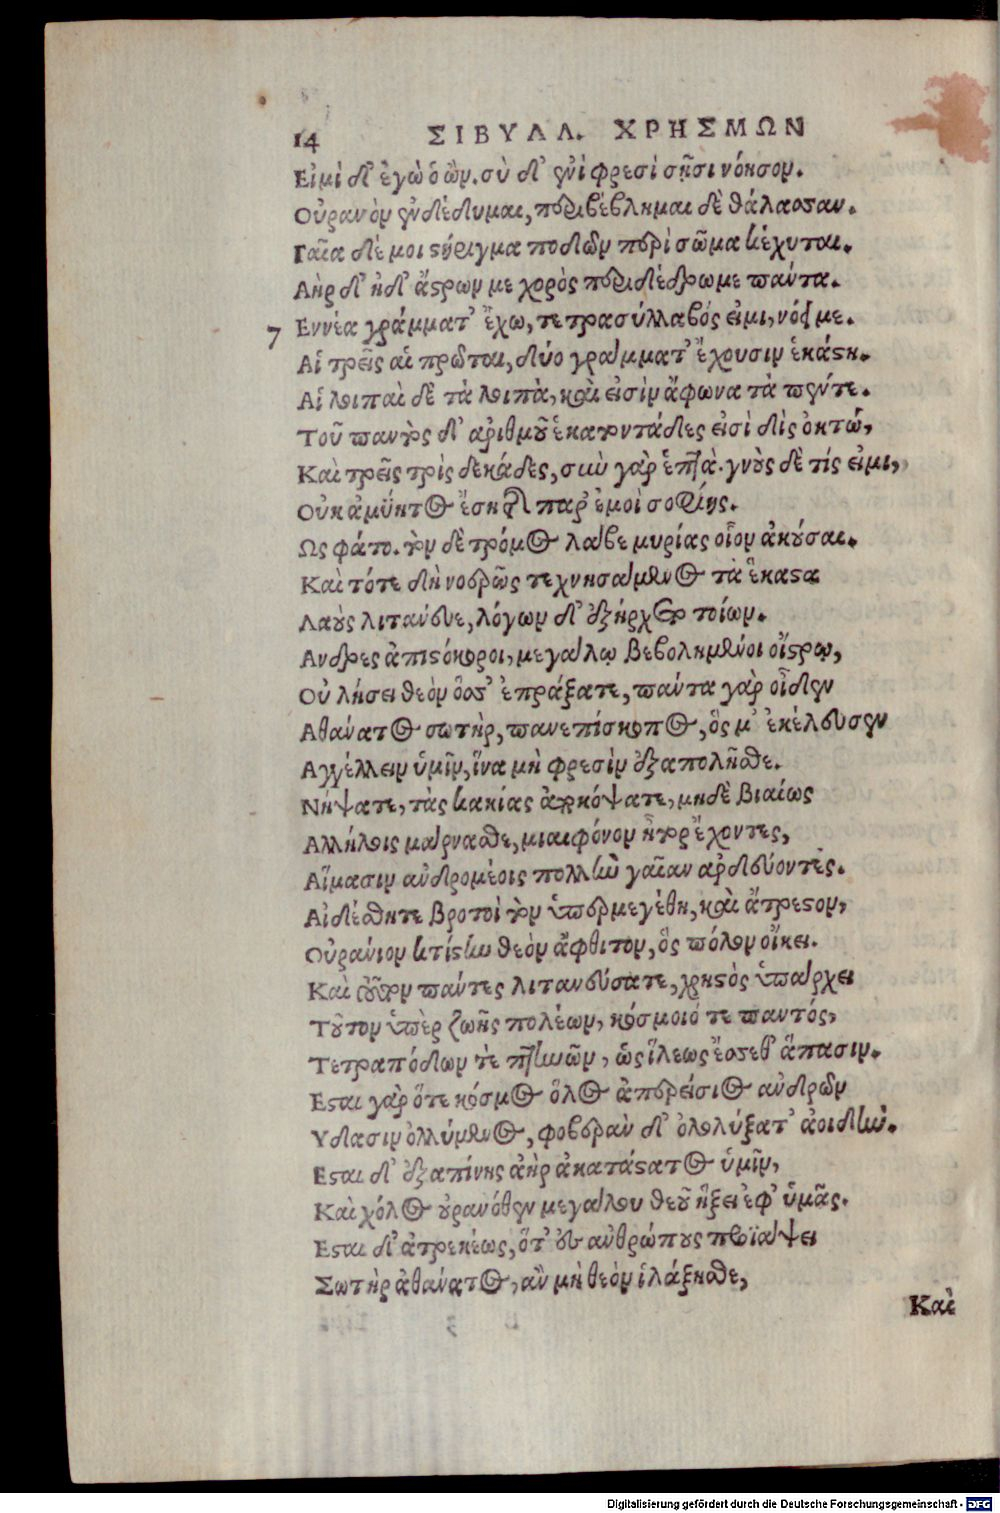 14 ΣΙΒΥΛΛ. ΧΡΗΣΜΩΝ
Εἰμὶ δ' ἐγὼ ὁ ὢν. σὺ δ' ἐνὶ φρεσὶ σῇσι νόησον.
Οὐρανὸν ἐνδέδυμαι, περιβέβλημαι δὲ θάλασσαν.
Γαῖα δέ μοι στήριγμα ποδῶν περὶ σῶμα κέχυται.
Αὴρ δ' ἠδ' ἄστρων με χορὸς περιδέδρομε πάντα.
7 Εννέα γράμματ' ἔχω, τετρασύλλαβός εἰμι, νόει με.
Αἱ τρεῖς αἱ πρῶται, δύο γράμματ' ἔχουσιν ἑκάστη.
Αἱ λοιπαὶ δὲ τὰ λοιπὰ, καὶ εἰσὶν ἄφωνα τὰ πέντε.
Τοῦ παντὸς δ' ἀριθμοῦ ἑκατοντάδες εἰσὶ δὶς ὀκτώ,
Καὶ τρεῖς τρὶς δεκάδες, σὺν γὰρ ἑπτὰ. γνοὺς δὲ τίς εἰμι,
Οὐκ ἀμύητος ἔσῃ τῆς παρ' ἐμοὶ σοφίης.
Ως φάτο. τὸν δὲ τρόμος λάβε μυρίας οἷον ἀκοῦσαι.
Καὶ τότε δὴ νοερῶς τεχνησάμενος τὰ ἕκαστα
Λαοὺς λιτάνευε, λόγων δ' ἐξήρχετο τοίων.
Ανδρες ἀπιστόκοροι, μεγάλῳ βεβολημένοι οἴστρῳ,
Οὐ λήσει θεὸν ὅσσ' ἐπράξατε, πάντα γὰρ οἶδεν
Αθάνατος σωτὴρ, πανεπίσκοπος, ὅς μ' ἐκέλευσεν
Αγγέλλειν ὑμῖν, ἵνα μὴ φρεσὶν ἐξαπολῆσθε.
Νήψατε, τὰς κακίας ἀποκόψατε, μηδὲ βιαίως
Αλλήλοις μάρνασθε, μιαιφόνον ἦτορ ἔχοντες,
Αἵμασιν ἀνδρομέοις πολλὴν γαῖαν ἀρδεύοντες.
Αἰδέσθητε βροτοὶ τὸν ὑπερμεγέθη, καὶ ἄτρεστον,
Οὐράνιον κτίστην θεὸν ἄφθιτον, ὃς πόλον οἴκει.
Καὶ τοῦτον πάντες λιτανεύσατε, χρηστὸς ὑπάρχει
Τοῦτον ὑπὲρ ζωῆς πολέων, κόσμοιό τε παντός,
Τετραπόδων τὲ πτηνῶν, ὡς ἵλεως ἔσσεθ' ἅπασιν.
Εσται γὰρ ὅτε κόσμος ὅλος ἀπερείσιος ἀνδρῶν
Υδασιν ὀλλύμενος, φοβερὰν δ' ὀλολύξατ' ἀοιδήν.
Εσται δ' ἐξαπίνης ἀὴρ ἀκατάστατος ὑμῖν,
Καὶ χόλος οὐρανόθεν μεγάλου θεοῦ ἥξει ἐφ' ὑμᾶς.
Εσται δ' ἀτρεκέως, ὅτ' εὐ ἀνθρώπους προϊάψει
Σωτὴρ ἀθάνατος, ἂν μὴ θεὸν ἱλάξησθε,
Καὶ
Digitalisierung gefördert durch die Deutsche Forschungsgemeinschaft - DFG